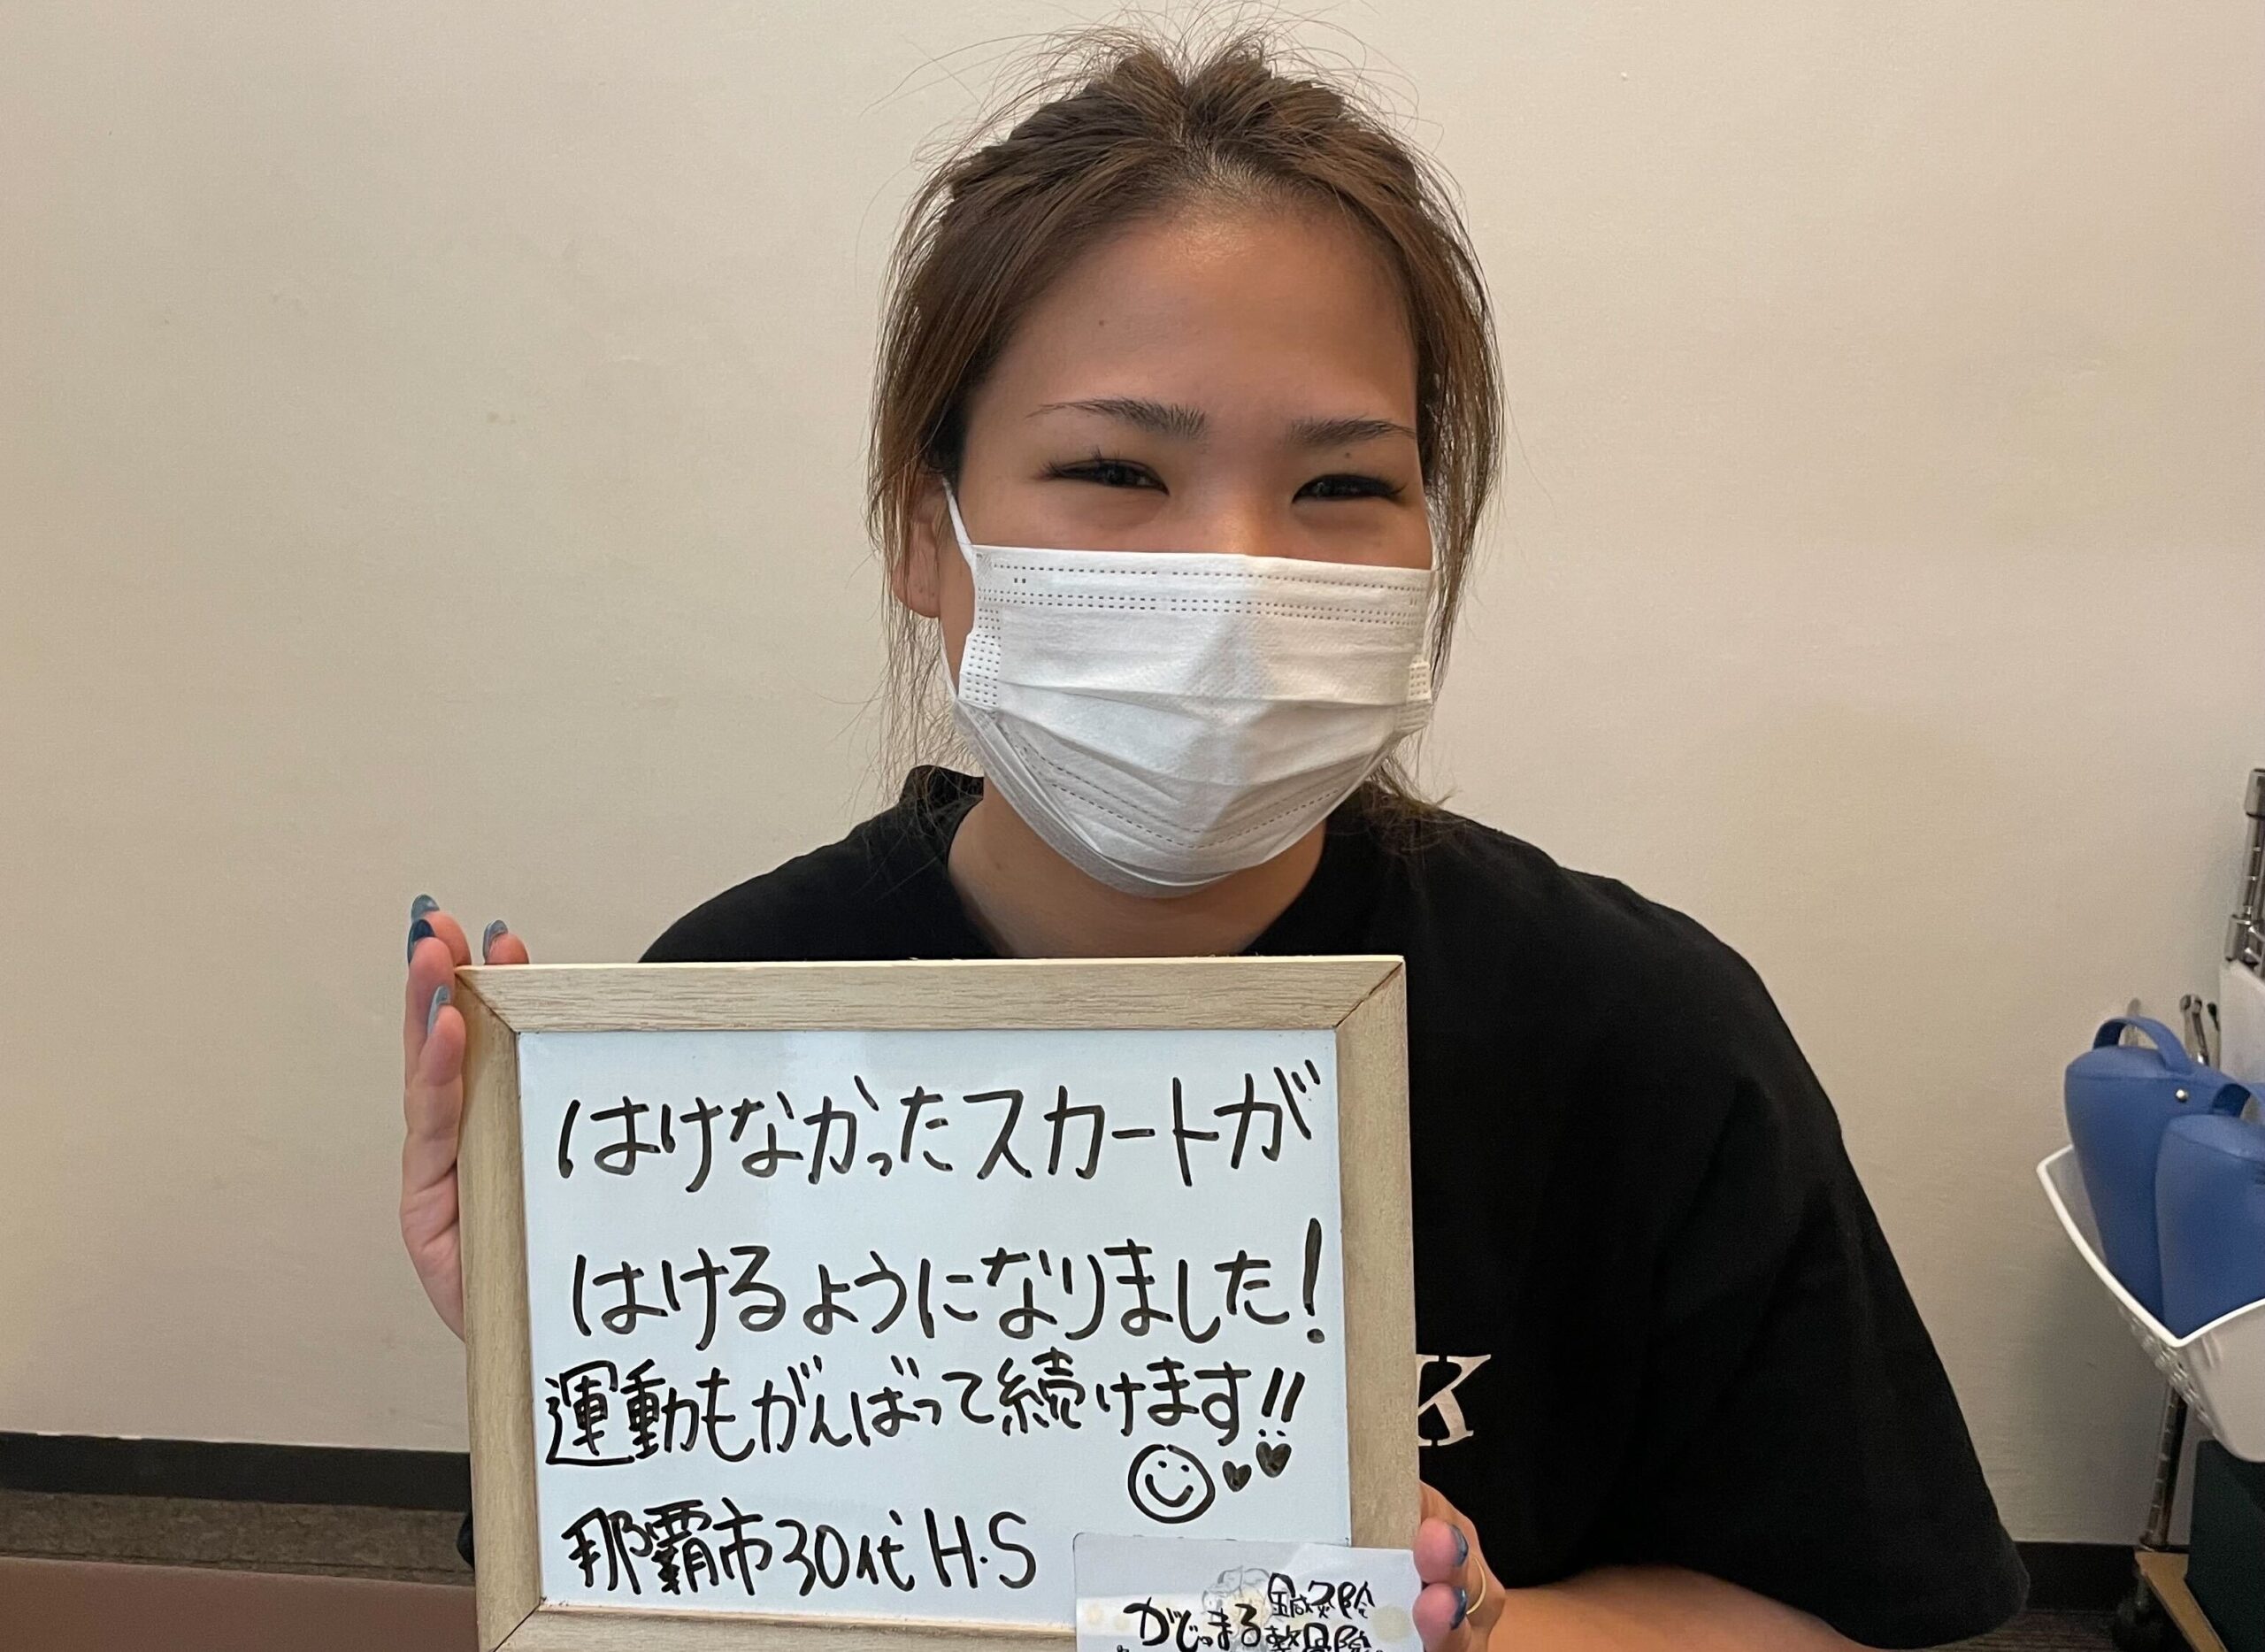 はけなかったスカートが
はけるようになりました!
運動もがんばって続けます!!
那覇市30代 H.S
鍼灸院
がじゅまる整骨院
K